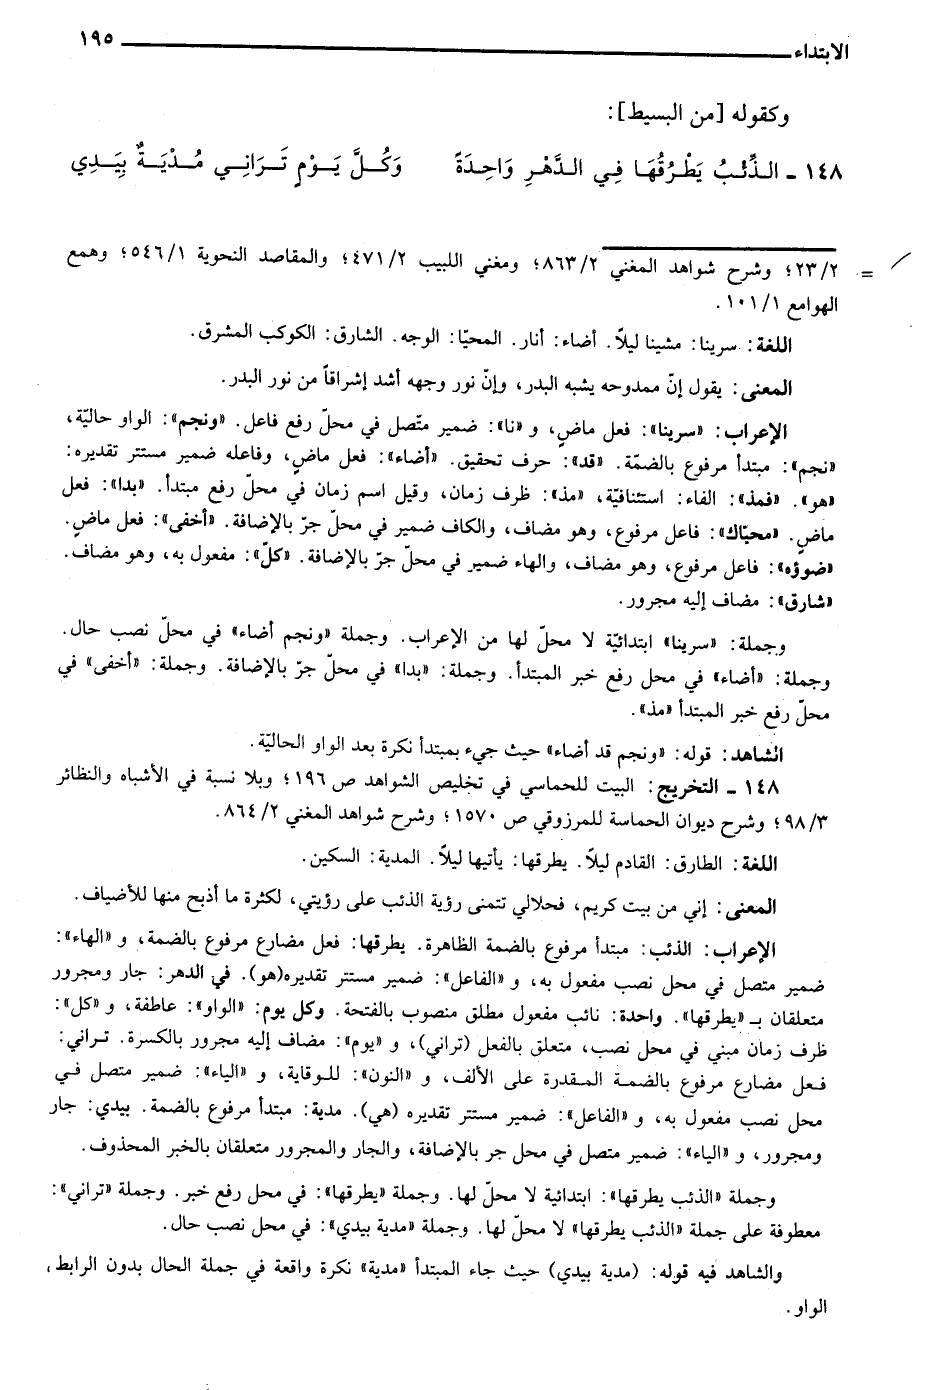 الابتداء ١٩٥
وكقوله [من البسيط]:
١٤٨ ـ الـذِّئْبُ يَطْرُقُهَا فِي الـدَّهْرِ وَاحِدَةً وَكُـلَّ يَـوْمٍ تَـرَانِـي مُـدْيَـةٌ بِيَـدِي
= ٢٣/٢؛ وشرح شواهد المغني ٨٦٣/٢؛ ومغني اللبيب ٤٧١/٢؛ والمقاصد النحوية ٥٤٦/١؛ وهمع
الهوامع ١٠١/١.
اللغة: سرينا: مشينا ليلاً. أضاء: أنار. المحيّا: الوجه. الشارق: الكوكب المشرق.
المعنى: يقول إنّ ممدوحه يشبه البدر، وإنّ نور وجهه أشد إشراقاً من نور البدر.
الإعراب: «سرينا»: فعل ماضٍ، و «نا»: ضمير متّصل في محلّ رفع فاعل. «ونجم»: الواو حاليّة،
«نجم»: مبتدأ مرفوع بالضمّة. «قد»: حرف تحقيق. «أضاء»: فعل ماضٍ، وفاعله ضمير مستتر تقديره:
«هو». «فمذ»: الفاء: استئنافيّة، «مذ»: ظرف زمان، وقيل اسم زمان في محلّ رفع مبتدأ. «بدا»: فعل
ماضٍ. «محيّاك»: فاعل مرفوع، وهو مضاف، والكاف ضمير في محلّ جرّ بالإضافة. «أخفى»: فعل ماضٍ.
«ضوؤه»: فاعل مرفوع، وهو مضاف، والهاء ضمير في محلّ جرّ بالإضافة. «كلّ»: مفعول به، وهو مضاف.
«شارق»: مضاف إليه مجرور.
وجملة: «سرينا» ابتدائيّة لا محلّ لها من الإعراب. وجملة «ونجم أضاء» في محلّ نصب حال.
وجملة: «أضاء» في محل رفع خبر المبتدأ. وجملة: «بدا» في محلّ جرّ بالإضافة. وجملة: «أخفى» في
محلّ رفع خبر المبتدأ «مذ».
الشاهد: قوله: «ونجم قد أضاء» حيث جيء بمبتدأ نكرة بعد الواو الحاليّة.
١٤٨ ـ التخريج: البيت للحماسي في تخليص الشواهد ص ١٩٦؛ وبلا نسبة في الأشباه والنظائر
٩٨/٣؛ وشرح ديوان الحماسة للمرزوقي ص ١٥٧٠؛ وشرح شواهد المغني ٨٦٤/٢.
اللغة: الطارق: القادم ليلاً. يطرقها: يأتيها ليلاً. المدية: السكين.
المعنى: إني من بيت كريم، فحلالي تتمنى رؤية الذئب على رؤيتي، لكثرة ما أذبح منها للأضياف.
الإعراب: الذئب: مبتدأ مرفوع بالضمة الظاهرة. يطرقها: فعل مضارع مرفوع بالضمة، و «الهاء»:
ضمير متصل في محل نصب مفعول به، و «الفاعل»: ضمير مستتر تقديره(هو). في الدهر: جار ومجرور
متعلقان بـ «يطرقها». واحدة: نائب مفعول مطلق منصوب بالفتحة. وكل يوم: «الواو»: عاطفة، و «كل»:
ظرف زمان مبني في محل نصب، متعلق بالفعل (تراني)، و «يوم»: مضاف إليه مجرور بالكسرة. تـراني:
فـعل مضارع مرفوع بالضمـة المـقدرة على الألف، و «النون»: للـوقاية، و «الياء»: ضمير متصل فـي
محل نصب مفعول به، و «الفاعل»: ضمير مستتر تقديره (هي). مدية: مبتدأ مرفوع بالضمة. بيدي: جار
ومجرور، و «الياء»: ضمير متصل في محل جر بالإضافة، والجار والمجرور متعلقان بالخبر المحذوف.
وجملة «الذئب يطرقها»: ابتدائية لا محلّ لها. وجملة «يطرقها»: في محل رفع خبر. وجملة «تراني»:
معطوفة على جملة «الذئب يطرقها» لا محلّ لها. وجملة «مدية بيدي»: في محل نصب حال.
والشاهد فيه قوله: (مدية بيدي) حيث جاء المبتدأ «مدية» نكرة واقعة في جملة الحال بدون الرابط،
الواو.